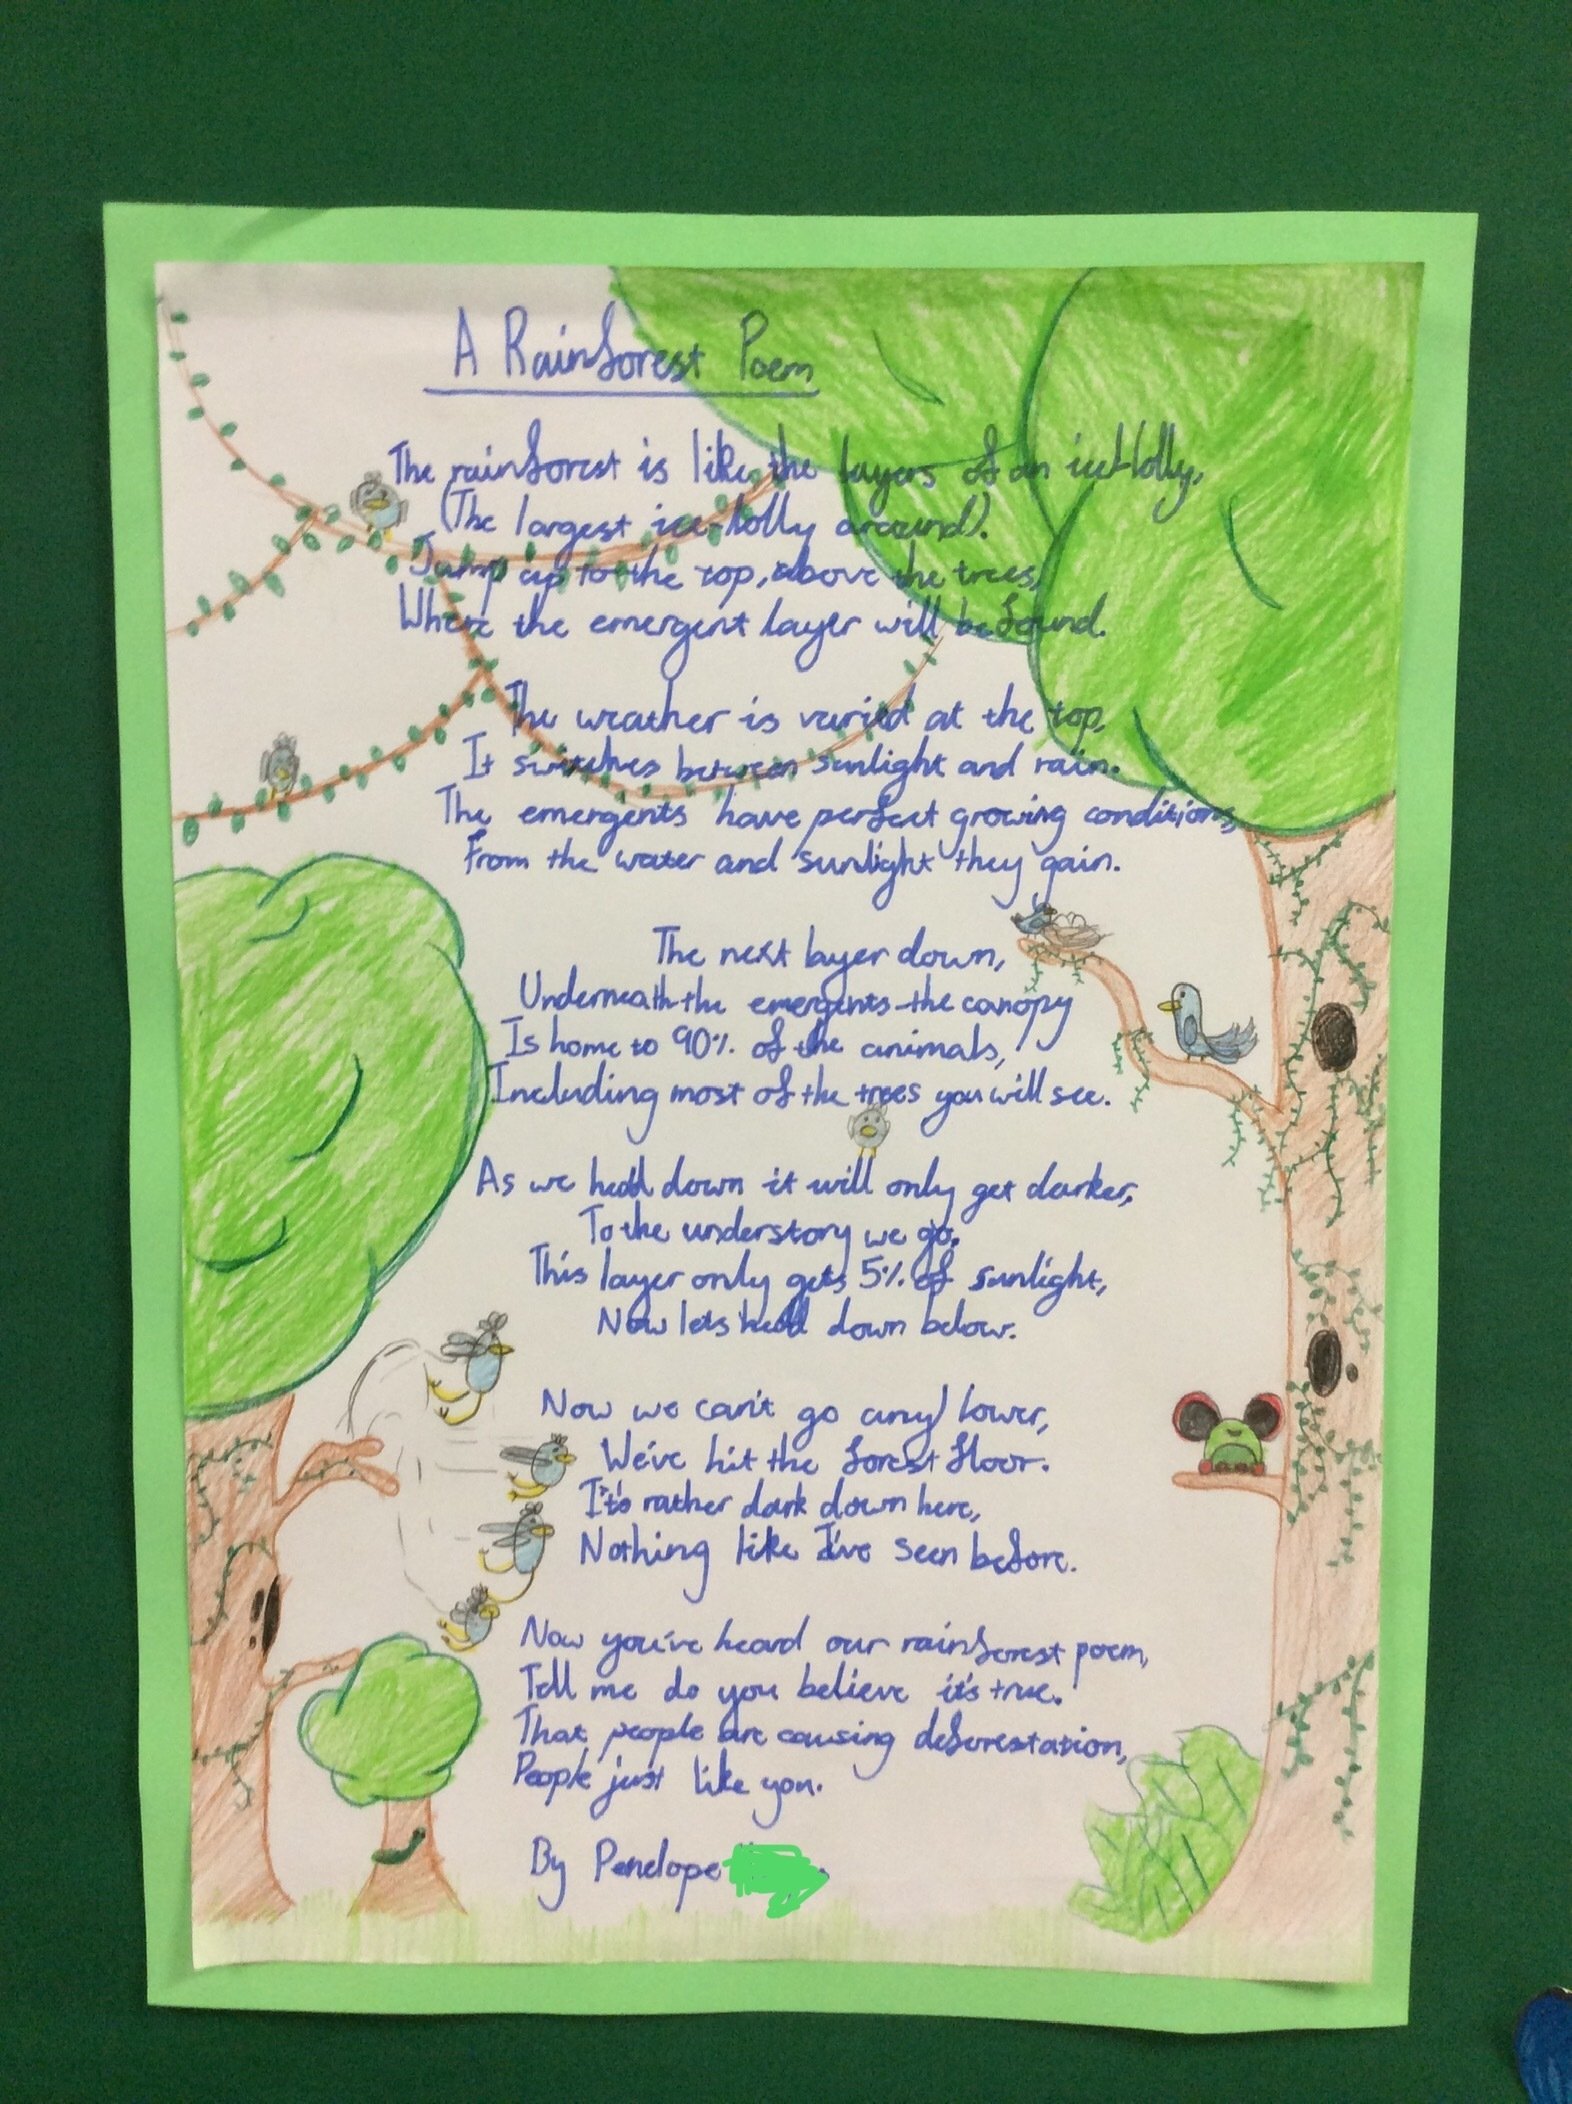 A Rainforest Poem
The rainforest is like the layers of an ice-lolly,
(The largest ice-lolly around).
Jump up to the top, above the trees,
Where the emergent layer will be found.
The weather is varied at the top,
It switches between sunlight and rain.
The emergents have perfect growing conditions,
From the water and sunlight they gain.
The next layer down,
Underneath the emergents-the canopy
Is home to 90% of the animals,
Including most of the trees you will see.
As we head down it will only get darker,
To the understory we go.
This layer only gets 5% of sunlight,
Now lets head down below.
Now we can't go any lower,
We've hit the forest floor.
It's rather dark down here,
Nothing like I've seen before.
Now you've heard our rainforest poem,
Tell me do you believe it's true.
That people are causing deforestation,
People just like you.
By Penelope